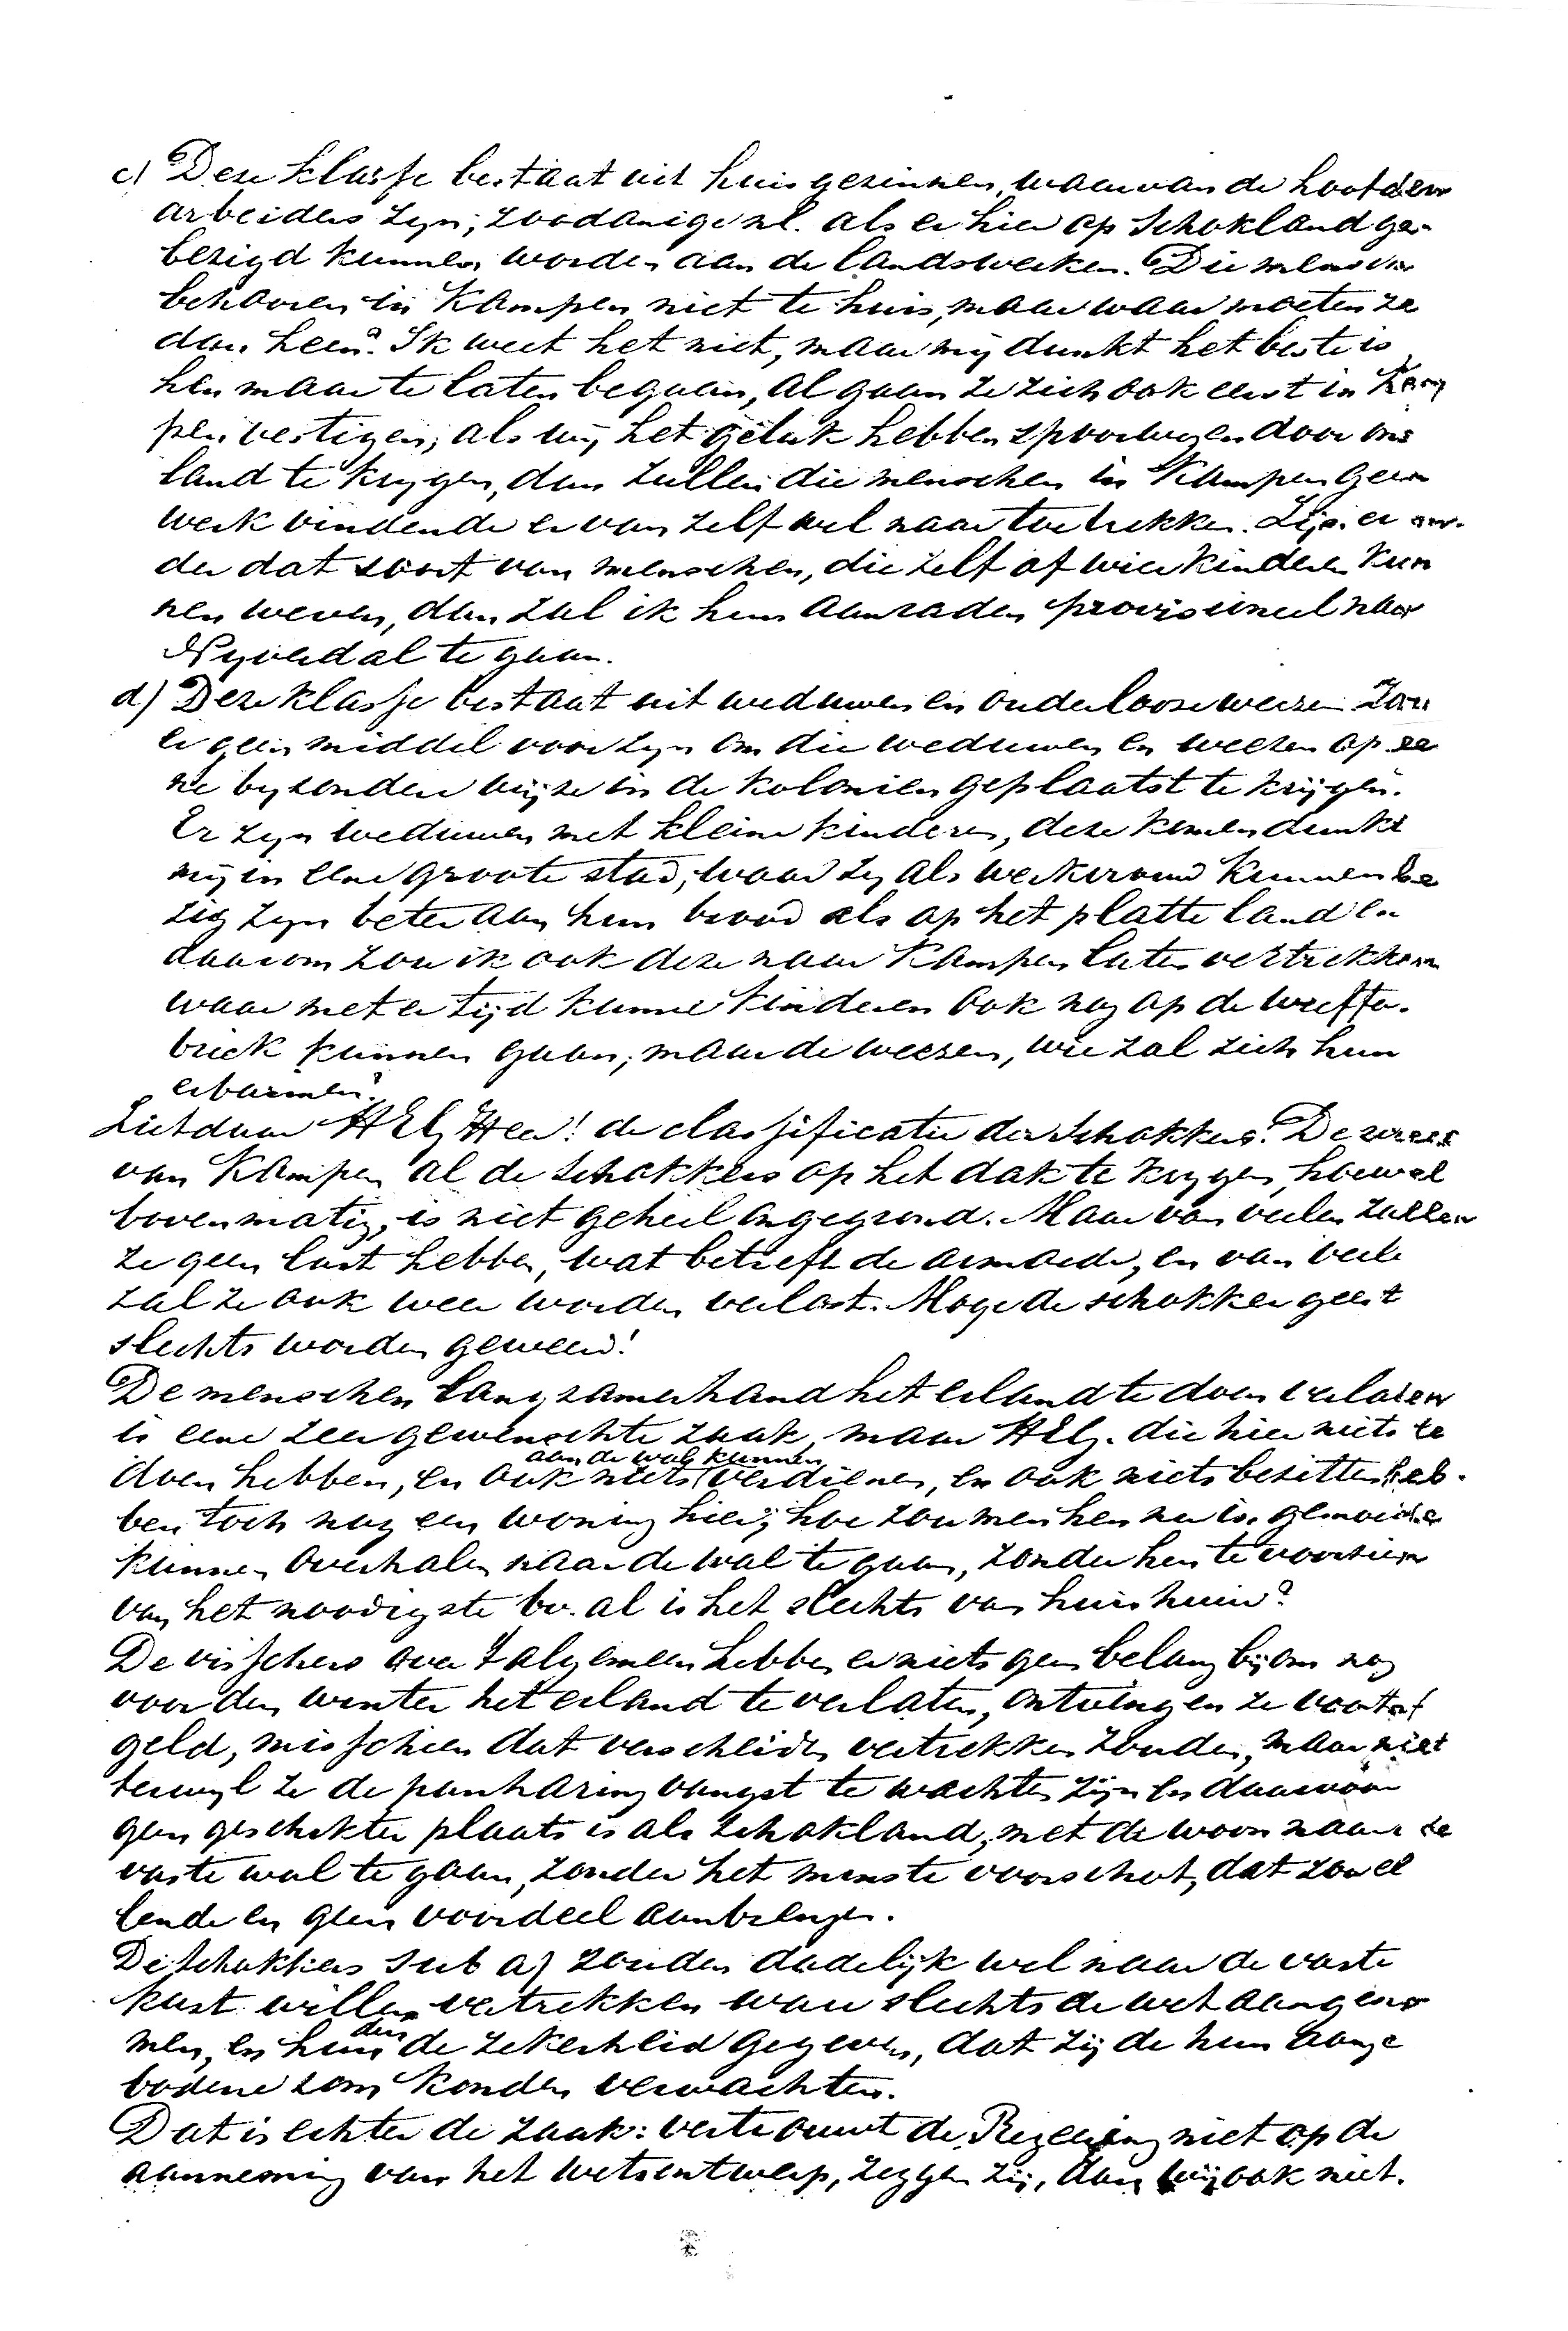 c) Deze klasse bestaat uit huisgezinnen, waarvan de hoofden
arbeiders zyn; zoodanige nl. als er hier op Schokland ge-
bezigd kunnen worden aan de landswerken. Die menschen
behooren in Kampen niet te huis, maar waar moeten ze
dan heen? Ik weet het niet, maar mij dunkt het beste is
hen maar te laten begaan, al gaan ze zich ook eerst in Kam
pen vestigen; als wij het geluk hebben spoorwegen door ons
land te krygen, dan zullen die menschen in Kampen geen
werk vindende er van zelf wel naar toe trekken. Zijn er on-
der dat soort van menschen, die zelf of wier kinderen kun
nen weven, dan zal ik hun aanraden provisioneel naar
Nyverdal te gaan.
d) Deze klasse bestaat uit weduwen en ouderlooze weezen. Zou
er geen middel voor zyn om die weduwen en weezen op ee
ne byzondere wijze in de kolonien geplaatst te krijgen.
Er zyn weduwen met kleine kinderen, deze komen dunkt
mij in eene groote stad, waar zy als werkvrouw kunnen be
zig zyn beter aan hun brood als op het platte land en
daarom zou ik ook deze naar Kampen laten vertrekken
waar met er tijd hunne kinderen ook nog op de weeffa-
briek kunnen gaan; maar de weezen, wie zal zich hun
erbarmen?
Ziet daar HEly Heer! de classificatie der Schokkers. De vrees
van Kampen al de Schokkers op het dak te krygen, hoewel
bovenmatig, is niet geheel ongegrond. Maar van veelen zullen
ze geen last hebben, wat betreft de armoede, en van veele
zal ze ook weer worden verlost. Moge de schokker geest
slechts worden geweerd!
De menschen langzamerhand het eiland te doen verlaten
is eene zeer gewenschte zaak, maar HElg. die hier niets te
aan de wal kunnen
doen hebben, en ook niets verdienen, en ook niets bezitten heb-
ben toch nog een woning hier; hoe zou men hen nu in gemoede
kunnen overhalen naar de wal te gaan, zonder hen te voorzien
van het noodigste bv. al is het slechts van huishuur?
De visschers over 't algemeen hebben er niets geen belang bij om nog
voor den winter het eiland te verlaten, ontvingen ze vooraf
geld, misschien dat verscheiden vertrekken zouden, maar niet
terwyl ze de panharing vangst te wachten zijn en daarvoor
geen geschikter plaats is als Schokland, met de woon naar de
vaste wal te gaan, zonder het minste voorschot, dat zou el
lende en geen voordeel aanbrengen.
De Schokkers sub a) zouden dadelijk wel naar de vaste
kust willen vertrekken ware slechts de wet aangeno
dan
men, en hun de zekerheid gegeven, dat zij de hun aange
bodene som konden verwachten.
Dat is echter de zaak: vertrouwt de Regeering niet op de
aanneming van het wetsontwerp, zeggen zij, dan wij ook niet.